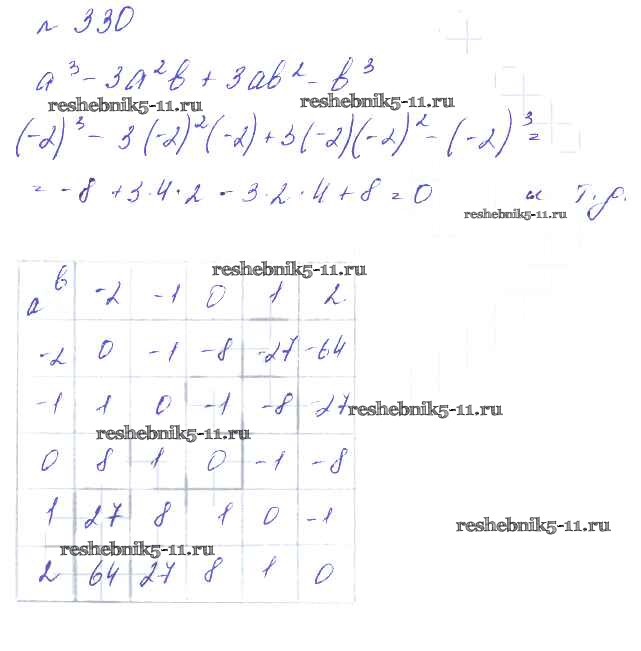 № 330
a³ - 3a²b + 3ab² - b³
reshebnik5-11.ru reshebnik5-11.ru
(-2)³ - 3(-2)²(-2) + 3(-2)(-2)² - (-2)³ =
= -8 + 3·4·2 - 3·2·4 + 8 = 0 и т.д.
reshebnik5-11.ru
reshebnik5-11.ru
a b -2 -1 0 1 2
-2 0 -1 -8 -27 -64
-1 1 0 -1 -8 -27
reshebnik5-11.ru
reshebnik5-11.ru
0 8 1 0 -1 -8
1 27 8 1 0 -1
reshebnik5-11.ru
reshebnik5-11.ru
2 64 27 8 1 0